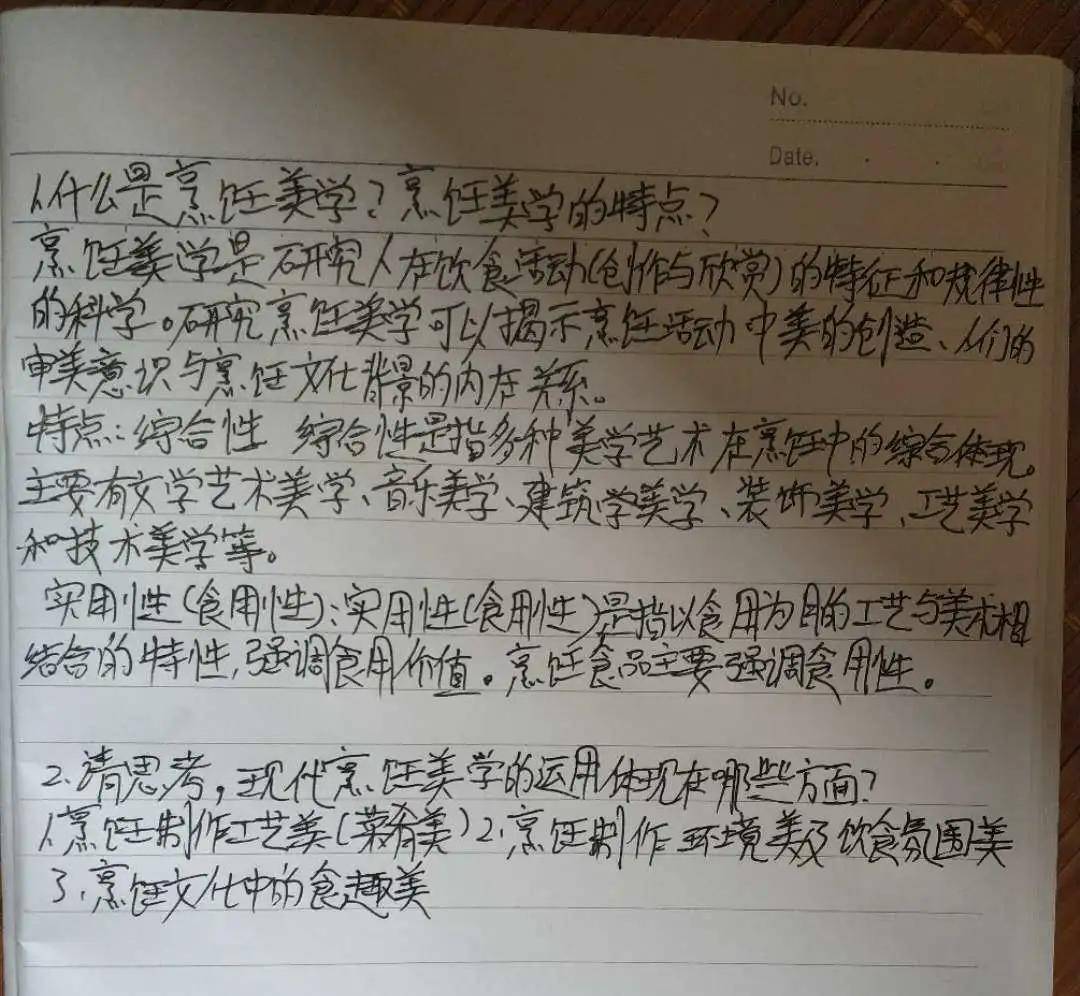 No.
Date.
1.什么是烹饪美学？烹饪美学的特点？
烹饪美学是研究人在饮食活动(创作与欣赏)的特征和规律性
的科学。研究烹饪美学可以揭示烹饪活动中美的创造、人们的
审美意识与烹饪文化背景的内在关系。
特点：综合性 综合性是指多种美学艺术在烹饪中的综合体现。
主要有文学艺术美学、音乐美学、建筑学美学、装饰美学、工艺美学
和技术美学等。
实用性(食用性)：实用性(食用性)是指以食用为目的工艺与美术相
结合的特性，强调食用价值。烹饪食品主要强调食用性。
2.请思考，现代烹饪美学的运用体现在哪些方面？
1.烹饪制作工艺美(菜肴美)2.烹饪制作环境美及饮食氛围美
3.烹饪文化中的食趣美